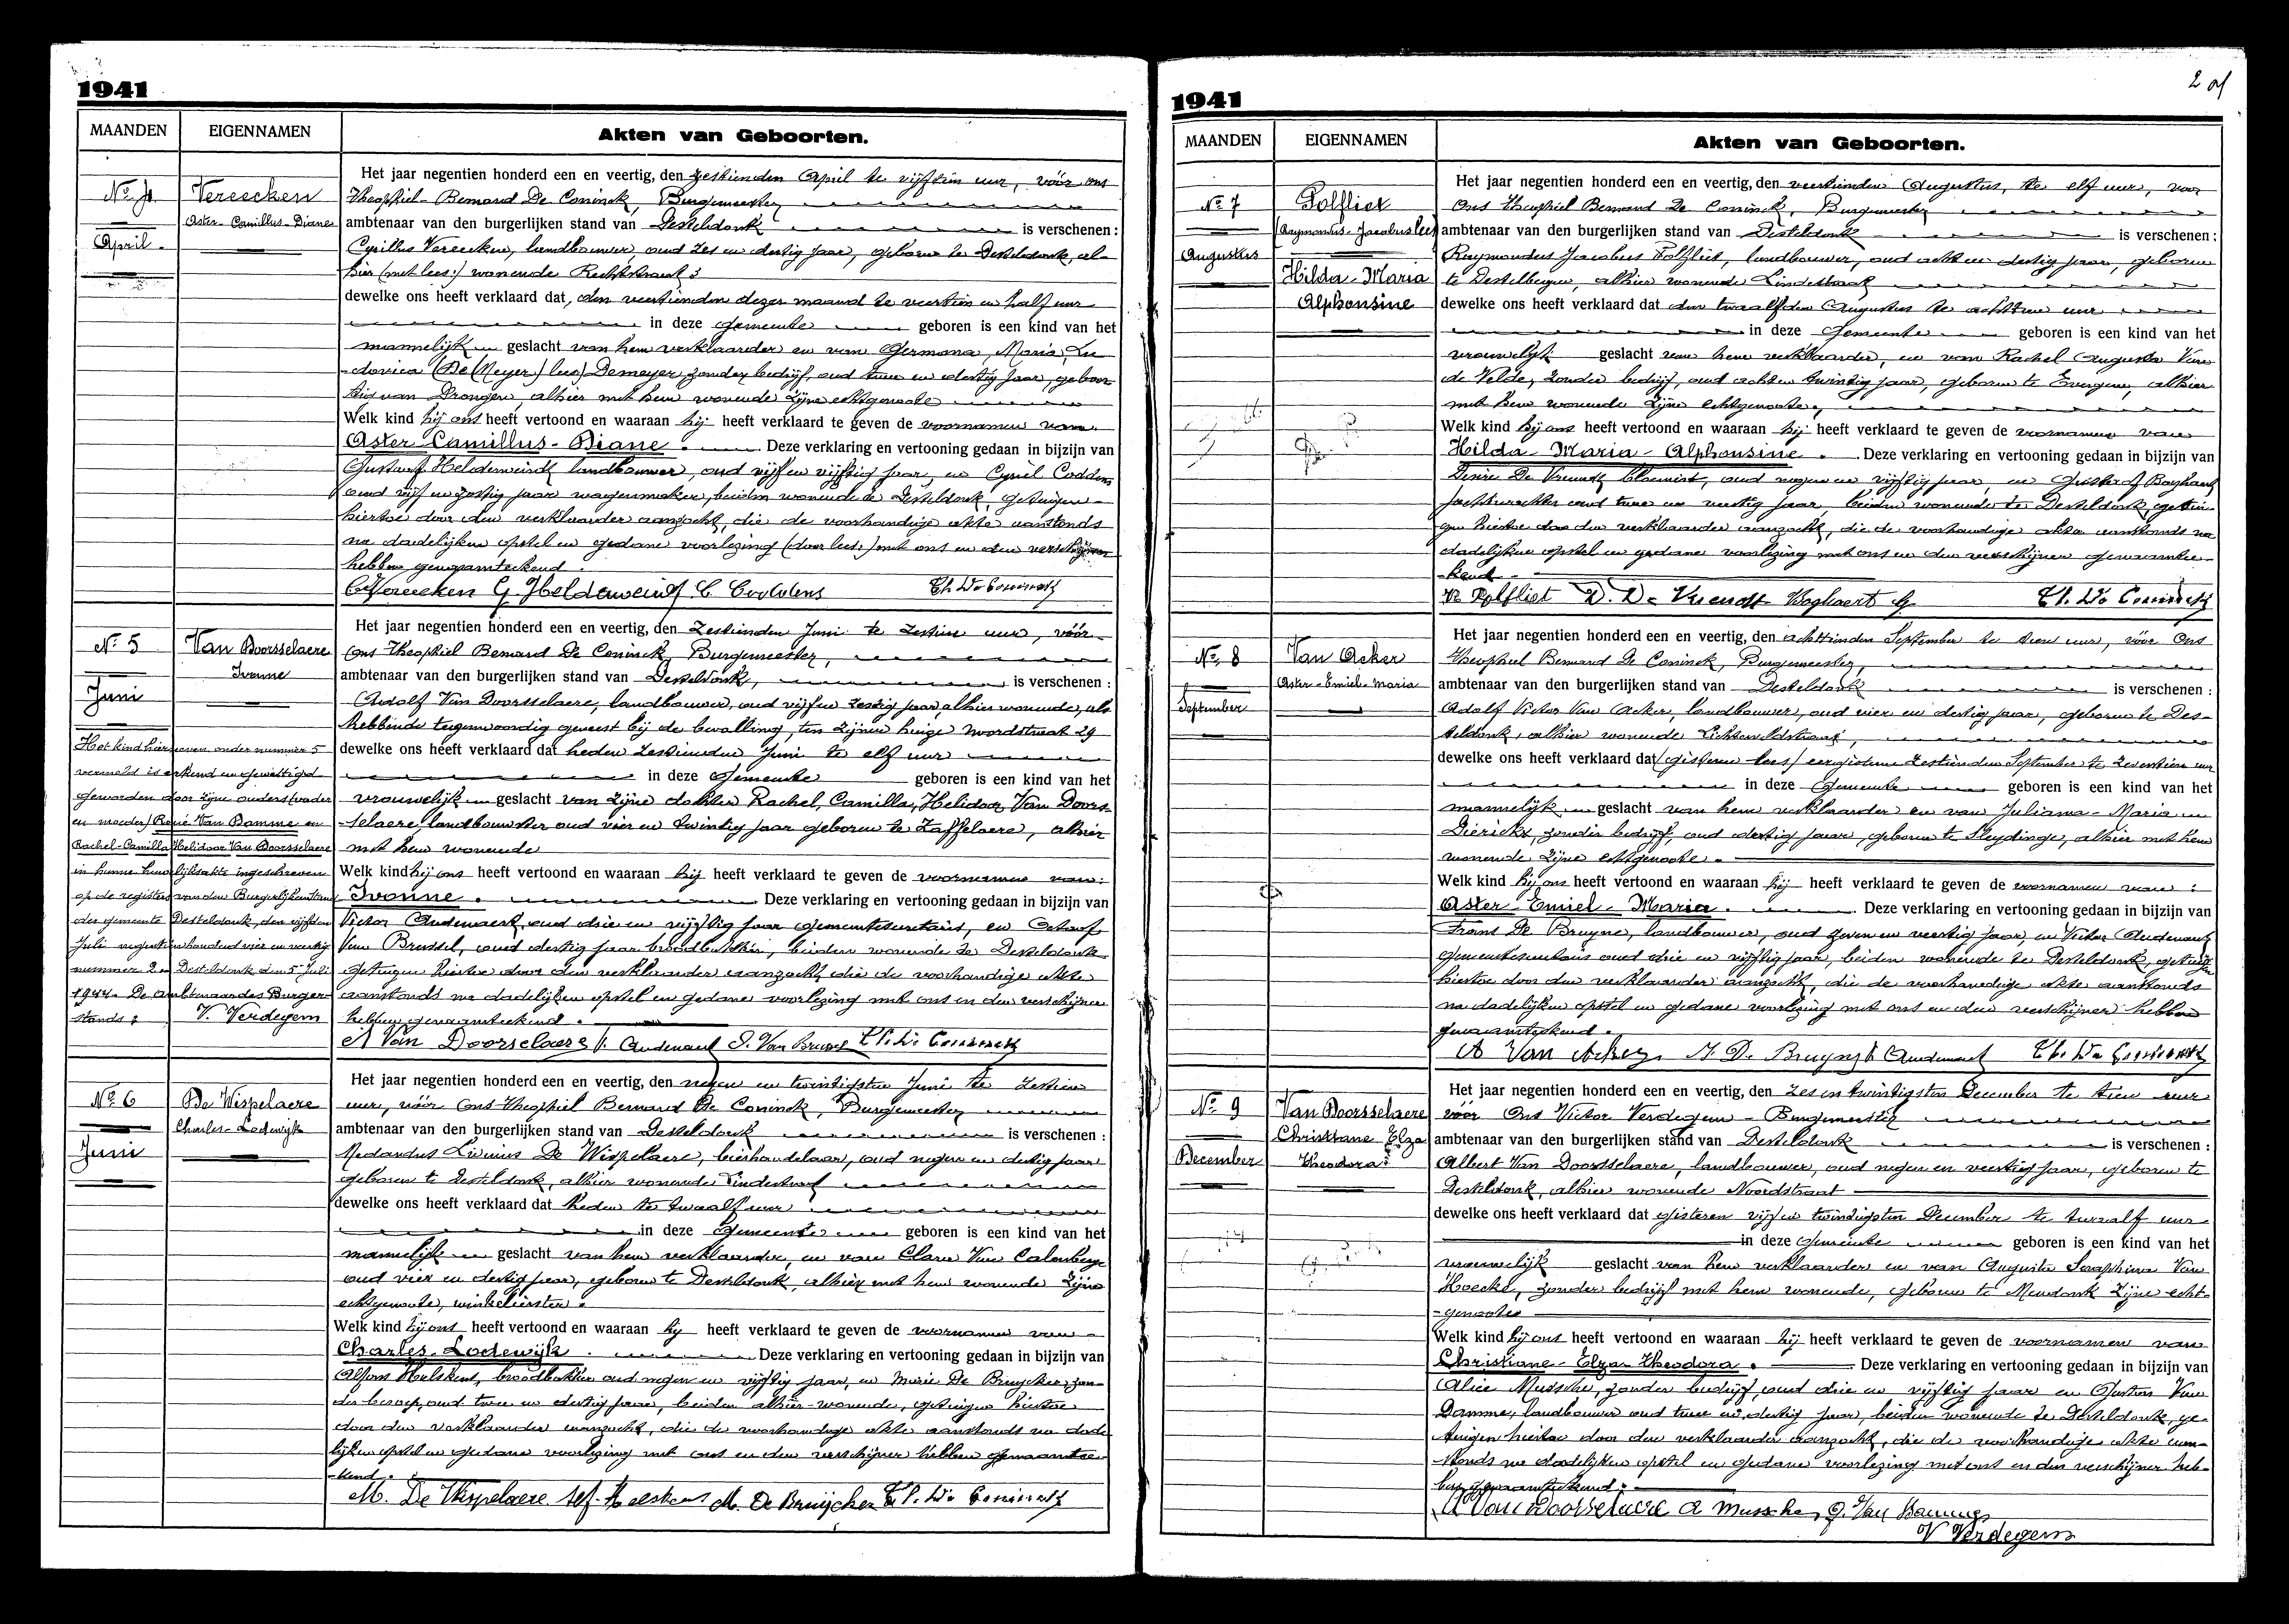 1941
MAANDEN
EIGENNAMEN
Akten van Geboorten.
No 4
Vereecken
Aster-Camillus-Diane
April.
Het jaar negentien honderd een en veertig, den zestienden April te vijftien uur, vóór ons
Theophiel-Bernard De Coninck, Burgemeester
ambtenaar van den burgerlijken stand van Desteldonk is verschenen:
Cyrillus Vereecken, landbouwer, oud zes en dertig jaar, geboren te Desteldonk, al-
hier (met lees:) wonende Rechtstraat 3
dewelke ons heeft verklaard dat, den veertienden dezer maand te veertien en half uur
in deze Gemeente geboren is een kind van het
mannelijk geslacht van hem verklaarder en van Germana, Maria, Lu-
dovica (De Meyer) lees) Demeyer zonder bedrijf, oud twee en dertig jaar, geboor-
tig van Drongen, alhier met hem wonende zijne echtgenoote
Welk kind hij ons heeft vertoond en waaraan hij heeft verklaard te geven de voornamen van
Aster-Camillus-Diane. Deze verklaring en vertooning gedaan in bijzijn van
Gustaaf Helderweirdt landbouwer, oud vijf en vijftig jaar, en Cyriel Coddens
oud vijf en zestig jaar wagenmaker, beiden wonende te Desteldonk, getuigen
hiertoe door den verklaarder aanzocht, die de voorhandige akte aanstonds
na dadelijken opstel en gedane voorlezing (door lees:) met ons en den verschijner
hebben genaamteekend.
C Vereecken G. Helderweirdt C. Coddens Th. De Coninck
No 5
Van Doorsselaere
Ivonne
Juni
Het kind hierneven onder nummer 5
vermeld is erkend en gewettigd
geworden door zijne ouders (vader
en moeder) René Van Damme en
Rachel-Camilla Helidoor Van Doorsselaere
in hunne huwelijksakte ingeschreven
op de registers van den Burgerlijken stand
der gemeente Desteldonk, den vijfden
Juli negentienhonderd vier en veertig
nummer 2. Desteldonk, den 5 Juli
1944. De ambtenaar des Burger-
stands:
V. Verdegem
Het jaar negentien honderd een en veertig, den Zestienden Juni te zestien uur, vóór
Ons Theophiel Bernard De Coninck, Burgemeester,
ambtenaar van den burgerlijken stand van Desteldonk, is verschenen:
Adolf Van Doorsselaere, landbouwer, oud vijf en zestig jaar alhier wonende, als
hebbende tegenwoordig geweest bij de bevalling, ten zijnen huize Noordstraat 29
dewelke ons heeft verklaard dat heden zestienden Juni te elf uur
in deze Gemeente geboren is een kind van het
vrouwelijk geslacht van zijne dochter Rachel, Camilla, Helidoor Van Doors-
selaere, landbouwster oud vier en twintig jaar geboren te Zaffelaere, alhier
met hem wonende
Welk kind hij ons heeft vertoond en waaraan hij heeft verklaard te geven de voornamen van:
Ivonne. Deze verklaring en vertooning gedaan in bijzijn van
Victor Audenaert, oud drie en vijftig jaar gemeentesecretaris, en
Van Brussel, oud dertig jaar broodbakker, beiden wonende te Desteldonk
getuigen hiertoe door den verklaarder aanzocht, die de voorhandige akte
aanstonds na dadelijken opstel en gedane voorlezing met ons en den verschijner
hebben genaamteekend.
A Van Doorselaere V. Audenaert Van Brussel Th. De Coninck
No 6
De Wispelaere
Charles-Lodewijk
Juni
Het jaar negentien honderd een en veertig, den negen en twintigsten Juni te zestien
uur, vóór Ons Theophiel Bernard De Coninck, Burgemeester
ambtenaar van den burgerlijken stand van Desteldonk is verschenen:
Medardus Livinus De Wispelaere, bierhandelaar, oud negen en dertig jaar
geboren te Desteldonk, alhier wonende Lindestraat
dewelke ons heeft verklaard dat heden te twaalf uur
in deze Gemeente geboren is een kind van het
mannelijk geslacht van hem verklaarder, en van Clara Van Calenberge
oud vier en dertig jaar, geboren te Desteldonk, alhier met hem wonende zijne
echtgenoote, winkelierster.
Welk kind hij ons heeft vertoond en waaraan hij heeft verklaard te geven de voornamen van
Charles-Lodewijk. Deze verklaring en vertooning gedaan in bijzijn van
Alfons broodbakker oud negen en vijftig jaar, en Marie De Bruycker, zon-
der beroep, oud twee en dertig jaar, beiden alhier wonende, getuigen hiertoe
door den verklaarder aanzocht, die de voorhandige akte aanstonds na dade-
lijken opstel en gedane voorlezing met ons en den verschijner hebben genaamtee-
kend.
M. De Wispelaere Alf. M. De Bruijcker Th. De Coninck
1941
2
MAANDEN
EIGENNAMEN
Akten van Geboorten.
No 7
Polfliet
(Raymondus-Jacobus lees)
Augustus
Hilda-Maria
Alphonsine
Het jaar negentien honderd een en veertig, den veertienden Augustus, te elf uur, voor
Ons Theophiel Bernard De Coninck, Burgemeester
ambtenaar van den burgerlijken stand van Desteldonk is verschenen:
Raymondus Jacobus Polfliet, landbouwer, oud acht en dertig jaar, geboren
te Destelbergen, alhier wonende Lindestraat
dewelke ons heeft verklaard dat den twaalfden Augustus te achttien uur
in deze Gemeente geboren is een kind van het
vrouwelijk geslacht van hem verklaarder, en van Rachel Augusta Van
de Velde, zonder bedrijf, oud acht en twintig jaar, geboren te Evergem, alhier
met hem wonende zijne echtgenoote,
Welk kind hij ons heeft vertoond en waaraan hij heeft verklaard te geven de voornamen van
Hilda-Maria-Alphonsine. Deze verklaring en vertooning gedaan in bijzijn van
Desire De Vriendt bloemist, oud negen en vijftig jaar, en Gustaaf Boghaert
jachtwachter oud twee en veertig jaar, beiden wonende te Desteldonk, getui-
gen hiertoe door den verklaarder aanzocht, die de voorhandige akte aanstonds na
dadelijken opstel en gedane voorlezing met ons en den verschijner genaamtee-
kend
R Polfliet D. De Vriendt Boghaert G Th. De Coninck
No 8
Van Acker
Aster-Emiel-Maria
September
Het jaar negentien honderd een en veertig, den achttienden September te tien uur, vóór Ons
Theophiel Bernard De Coninck, Burgemeester,
ambtenaar van den burgerlijken stand van Desteldonk is verschenen:
Adolf Victor Van Acker, landbouwer, oud vier en dertig jaar, geboren te Des-
teldonk, alhier wonende Lichterveldstraat,
dewelke ons heeft verklaard dat (gisteren lees) eergisteren zestienden September te zeventien uur
in deze Gemeente geboren is een kind van het
mannelijk geslacht van hem verklaarder en van Juliana-Maria
Dierickx, zonder bedrijf, oud dertig jaar, geboren te Sleydinge, alhier met hem
wonende zijne echtgenoote.
Welk kind hij ons heeft vertoond en waaraan hij heeft verklaard te geven de voornamen van:
Aster-Emiel-Maria. Deze verklaring en vertooning gedaan in bijzijn van
Frans De Bruyne, landbouwer, oud zeven en veertig jaar, en Victor Audenaert
gemeentesecretaris oud drie en vijftig jaar, beiden wonende te Desteldonk, getuigen
hiertoe door den verklaarder aanzocht, die de voorhandige akte aanstonds
na dadelijken opstel en gedane voorlezing met ons en den verschijner hebben
genaamteekend.
A Van Acker De Bruyne V Audenaert Th. De Coninck
No 9
Van Doorsselaere
Christiane Elza
Theodora
December
Het jaar negentien honderd een en veertig, den zes en twintigsten December te tien uur
vóór Ons Victor Verdegem-Burgemeester
ambtenaar van den burgerlijken stand van Desteldonk is verschenen:
Albert Van Doorsselaere, landbouwer, oud negen en veertig jaar, geboren te
Desteldonk, alhier wonende Noordstraat
dewelke ons heeft verklaard dat gisteren vijf en twintigsten December te twaalf uur
in deze Gemeente geboren is een kind van het
vrouwelijk geslacht van hem verklaarder en van Augusta Seraphina Van
Hoecke, zonder bedrijf met hem wonende, geboren te Mendonk zijne echt-
genoote
Welk kind hij ons heeft vertoond en waaraan hij heeft verklaard te geven de voornamen van
Christiane-Elza-Theodora. Deze verklaring en vertooning gedaan in bijzijn van
Alice Mussche, zonder bedrijf oud drie en vijftig jaar en Gaston Van
Damme, landbouwer oud twee en dertig jaar, beiden wonende te Desteldonk, ge-
tuigen hiertoe door den verklaarder aanzocht, die de voorhandige akte aan-
stonds na dadelijken opstel en gedane voorlezing met ons en den verschijner heb-
ben genaamteekend.
A Van Doorselaere A Mussche, G. Van Damme
V Verdegem